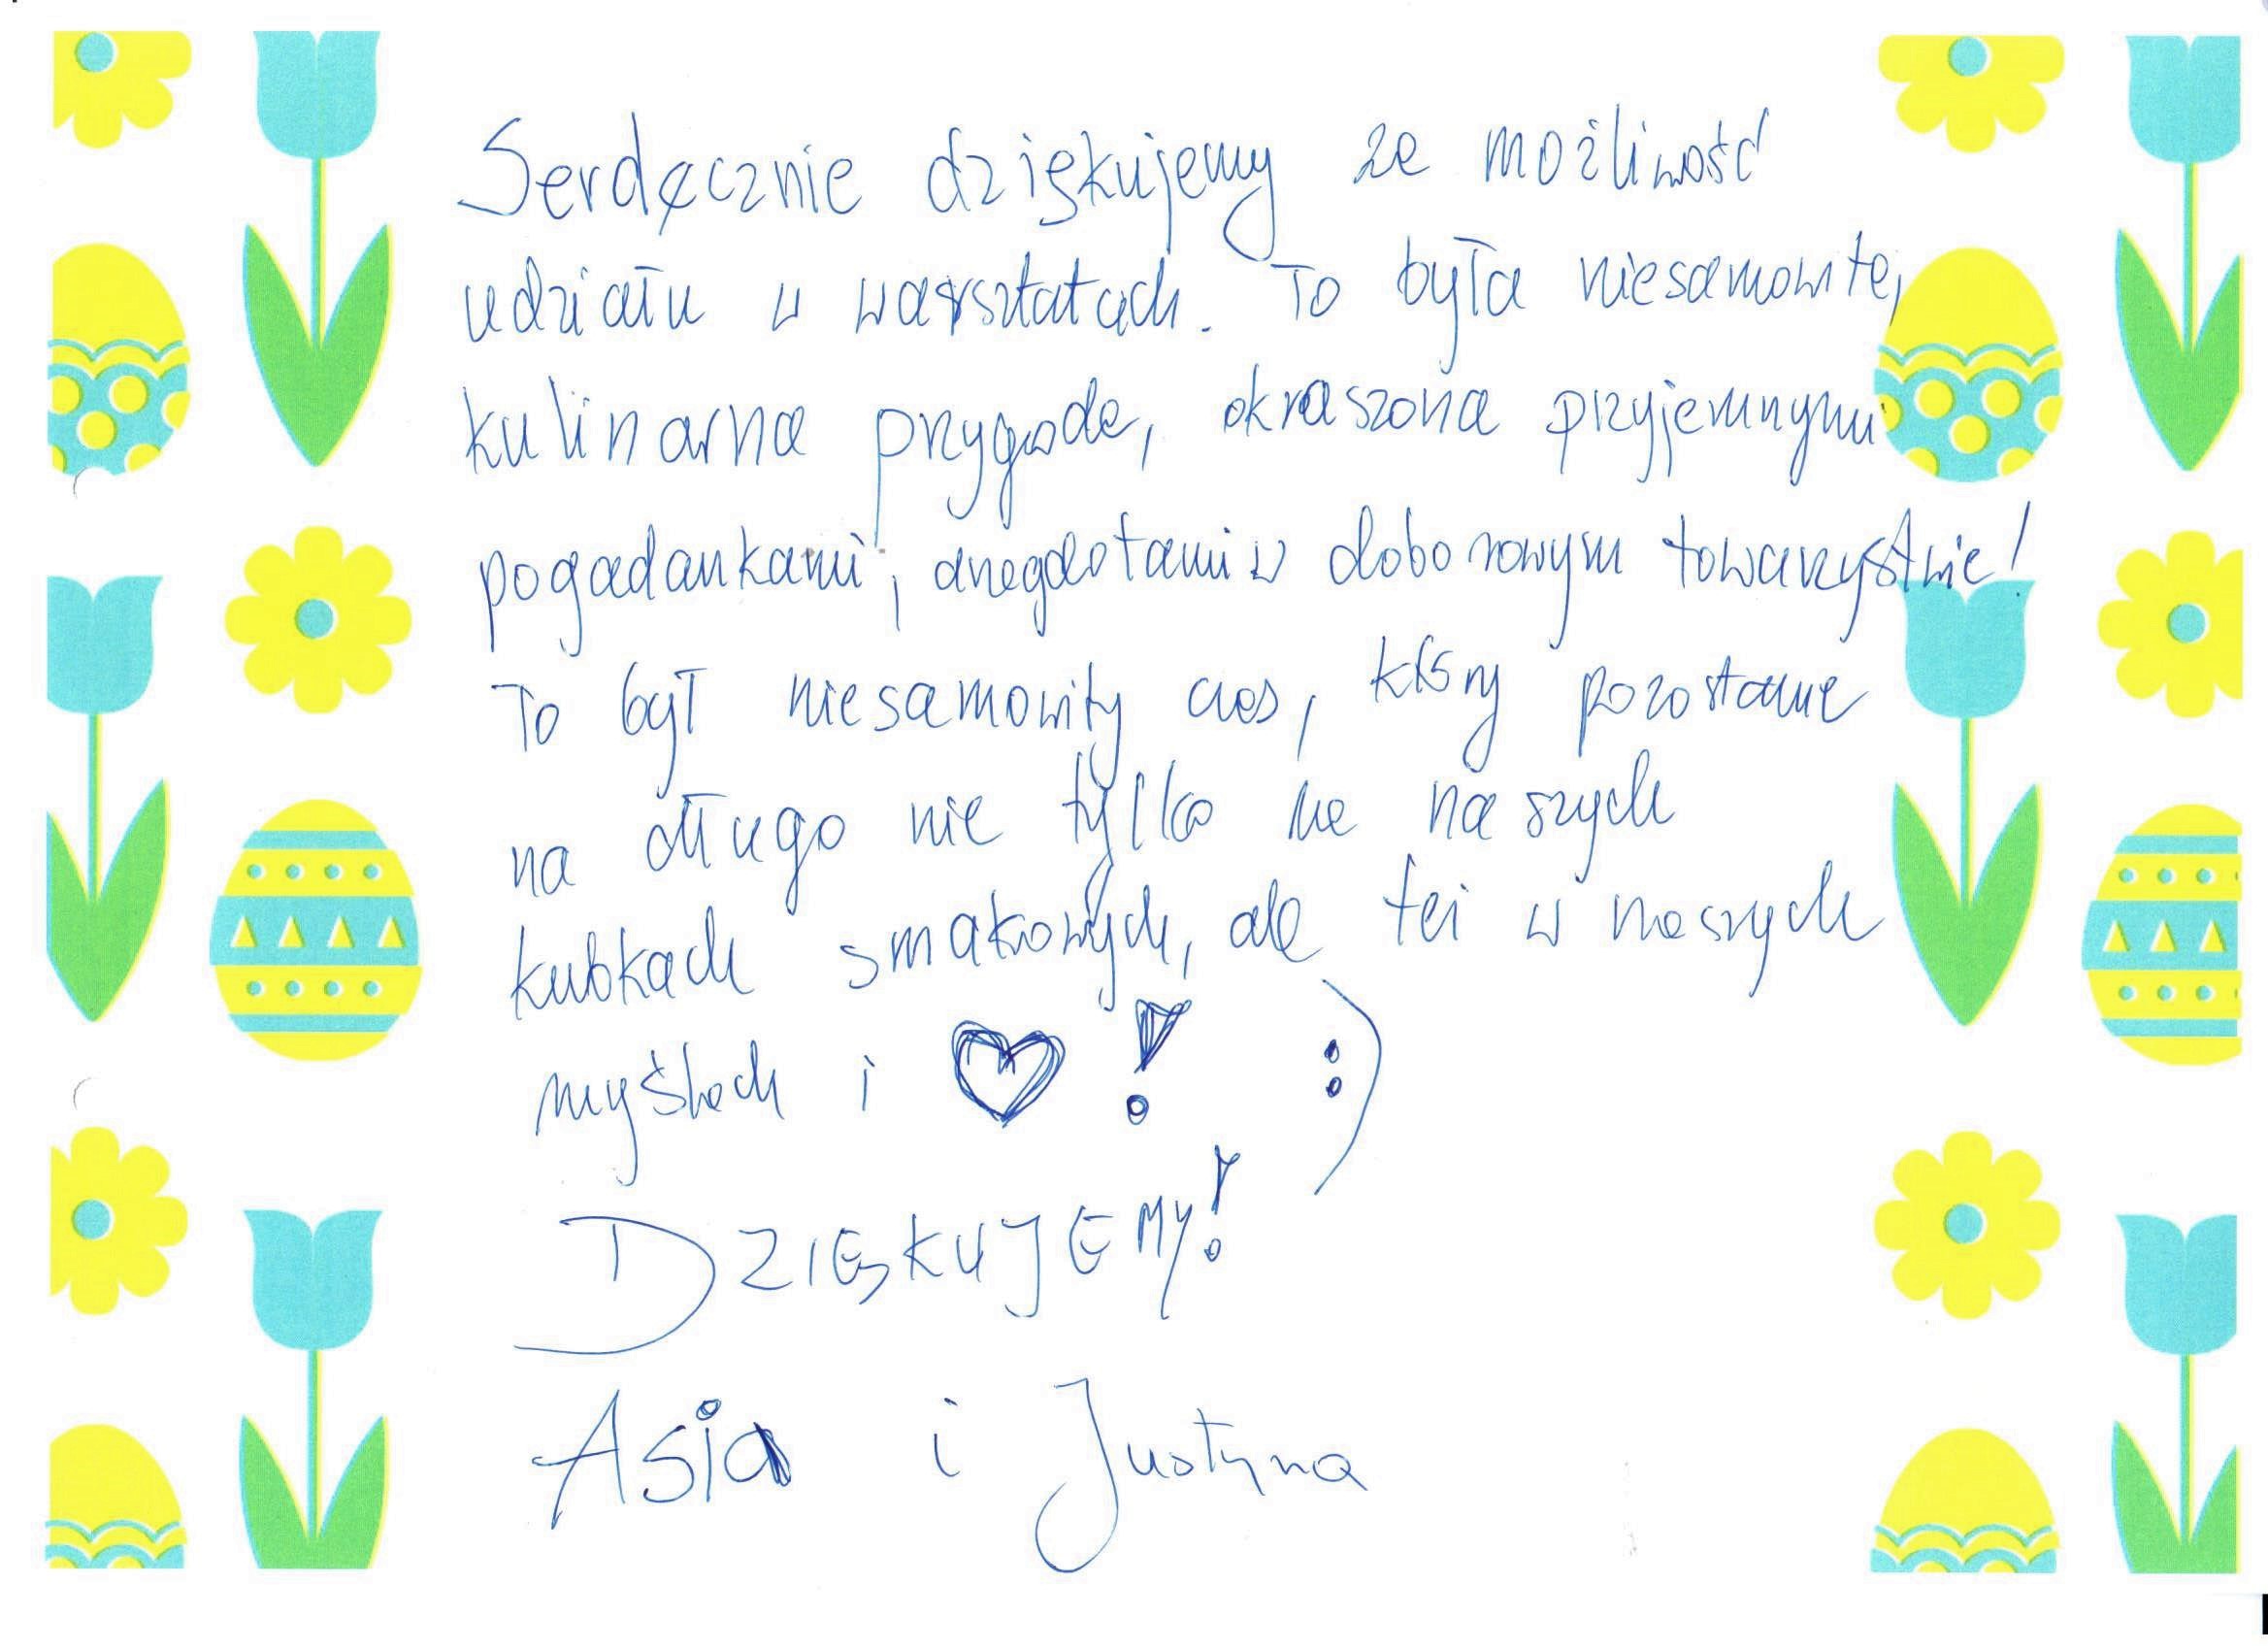 Serdęcznie dziękujemy za możliwość
udziału w warsztatach. To była niesamowita,
kulinarna przygoda, okraszona przyjemnymi
pogadankami, anegdotami w doborowym towarzystwie!
To był niesamowity czas, który pozostanie
na długo nie tylko na naszych
kubkach smakowych, ale też w naszych
myślach i ♥! :)
DZIĘKUJEMY!
Asia i Justyna